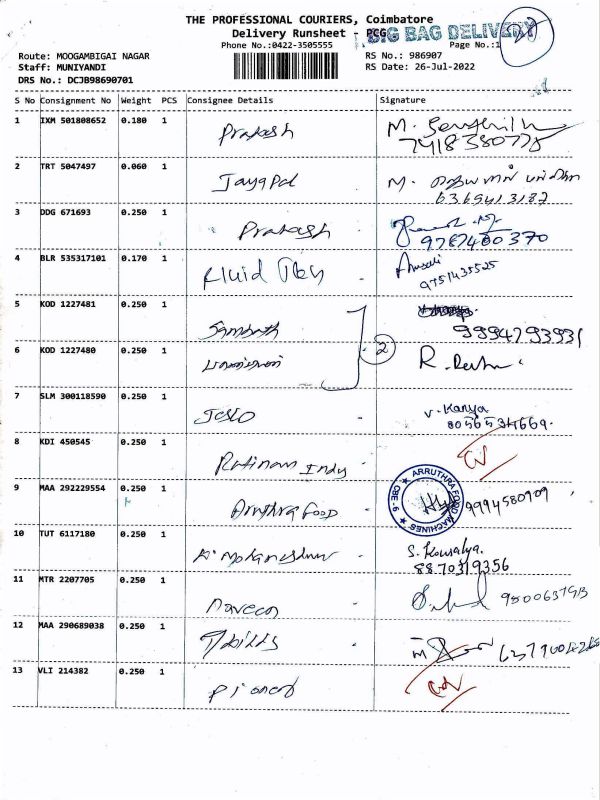 THE PROFESSIONAL COURIERS, Coimbatore
Delivery Runsheet - PCG
BIG BAG DELIVERY
Phone No.:0422-3505555
Page No.:1
Route: MOOGAMBIGAI NAGAR
RS No.: 986907
Staff: MUNIYANDI
RS Date: 26-Jul-2022
DRS No.: DCJB98690701
S No Consignment No Weight PCS Consignee Details Signature
1 IXM 501808652 0.180 1 Prakash M. Senthil
7418380778
2 TRT 5047497 0.060 1 Jayapal M.
6369413187
3 DDG 671693 0.250 1 Prakash
9787400370
4 BLR 535317101 0.170 1 Fluid
9751435525
5 KOD 1227481 0.250 1 Sampath
9994793931
6 KOD 1227480 0.250 1 2 R.
7 SLM 300118590 0.250 1 V. Kanya
8056534669.
8 KDI 450545 0.250 1 Ratinam Indu
9 MAA 292229554 0.250 1 Aruthra Food ARRUTHRA FOOD MACHINES CBE-6 9994580909
10 TUT 6117180 0.250 1 S. Kowsalya.
8870319356
11 MTR 2207705 0.250 1 Naveen
12 MAA 290689038 0.250 1
13 VLI 214382 0.250 1